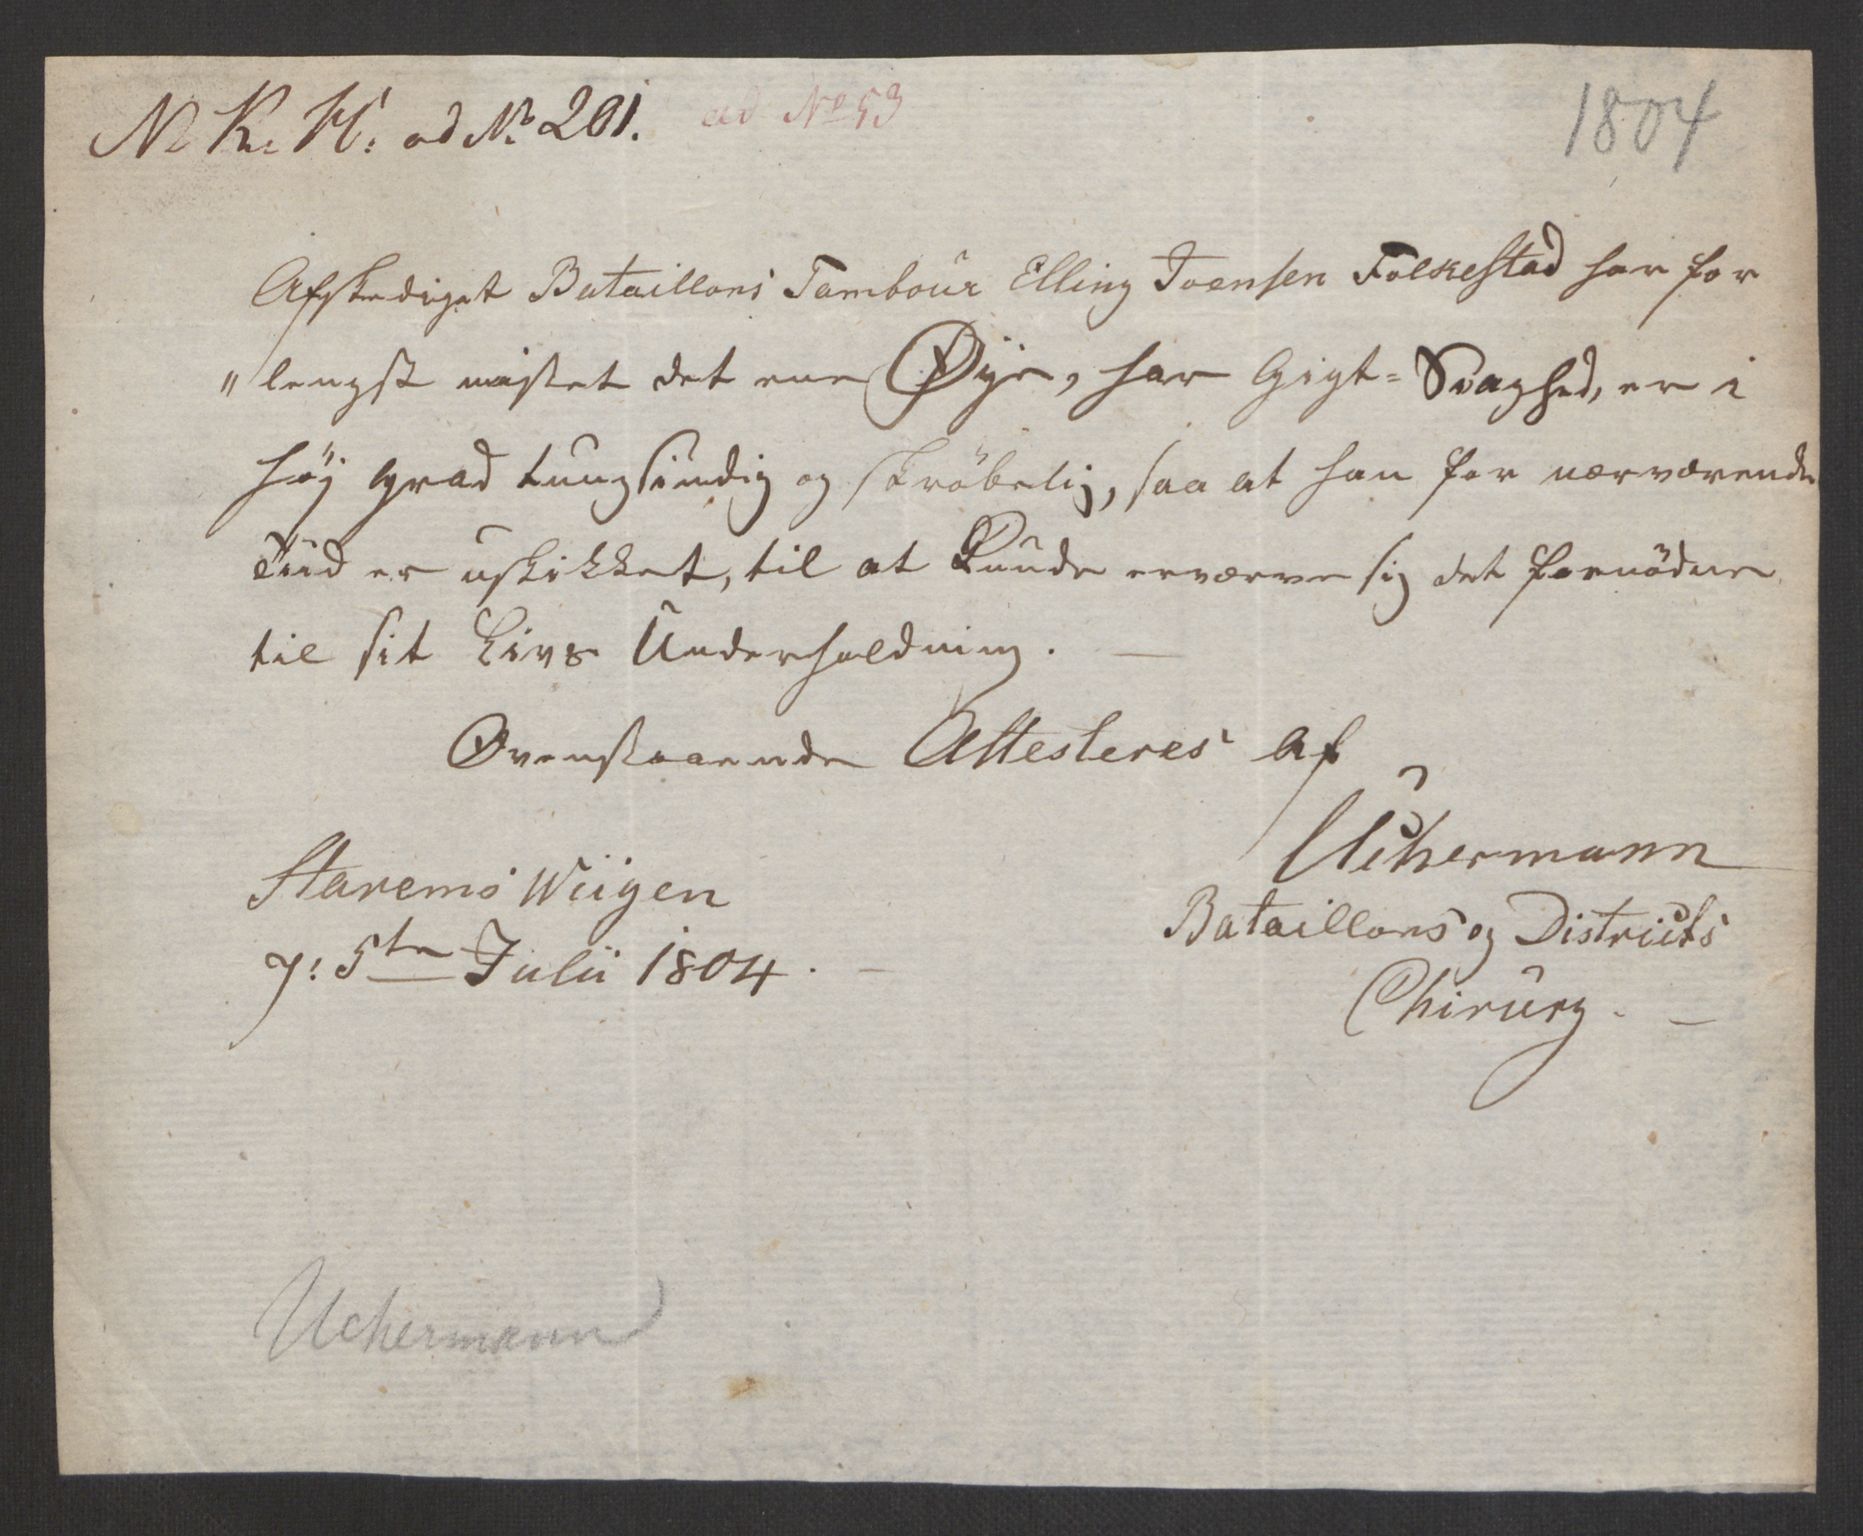 N. K. K: ad No 201. ad No 53
1804
Afskediget Bataillons Tambour Elling Ivensen Folkestad har for
"lengst mistet det ene Øye, har Gigt=Svaghed, er i
høj Grad tungsindig og skrøbelig, saa at han for nærværende
Tiid er uskikket, til at kunde erværve sig det fornødne
til sit Livs Underholdning. —
Ovenstaaende Attesteres af
Uchermann
Starems Wiigen
Bataillons og Districts
7: 5te Julii 1804. —
Chirurg. —
Uchermann